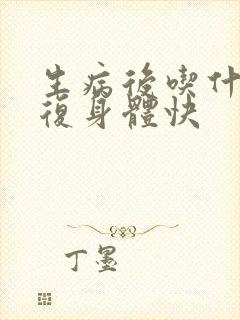 生病後喫什
復身體快
丁墨